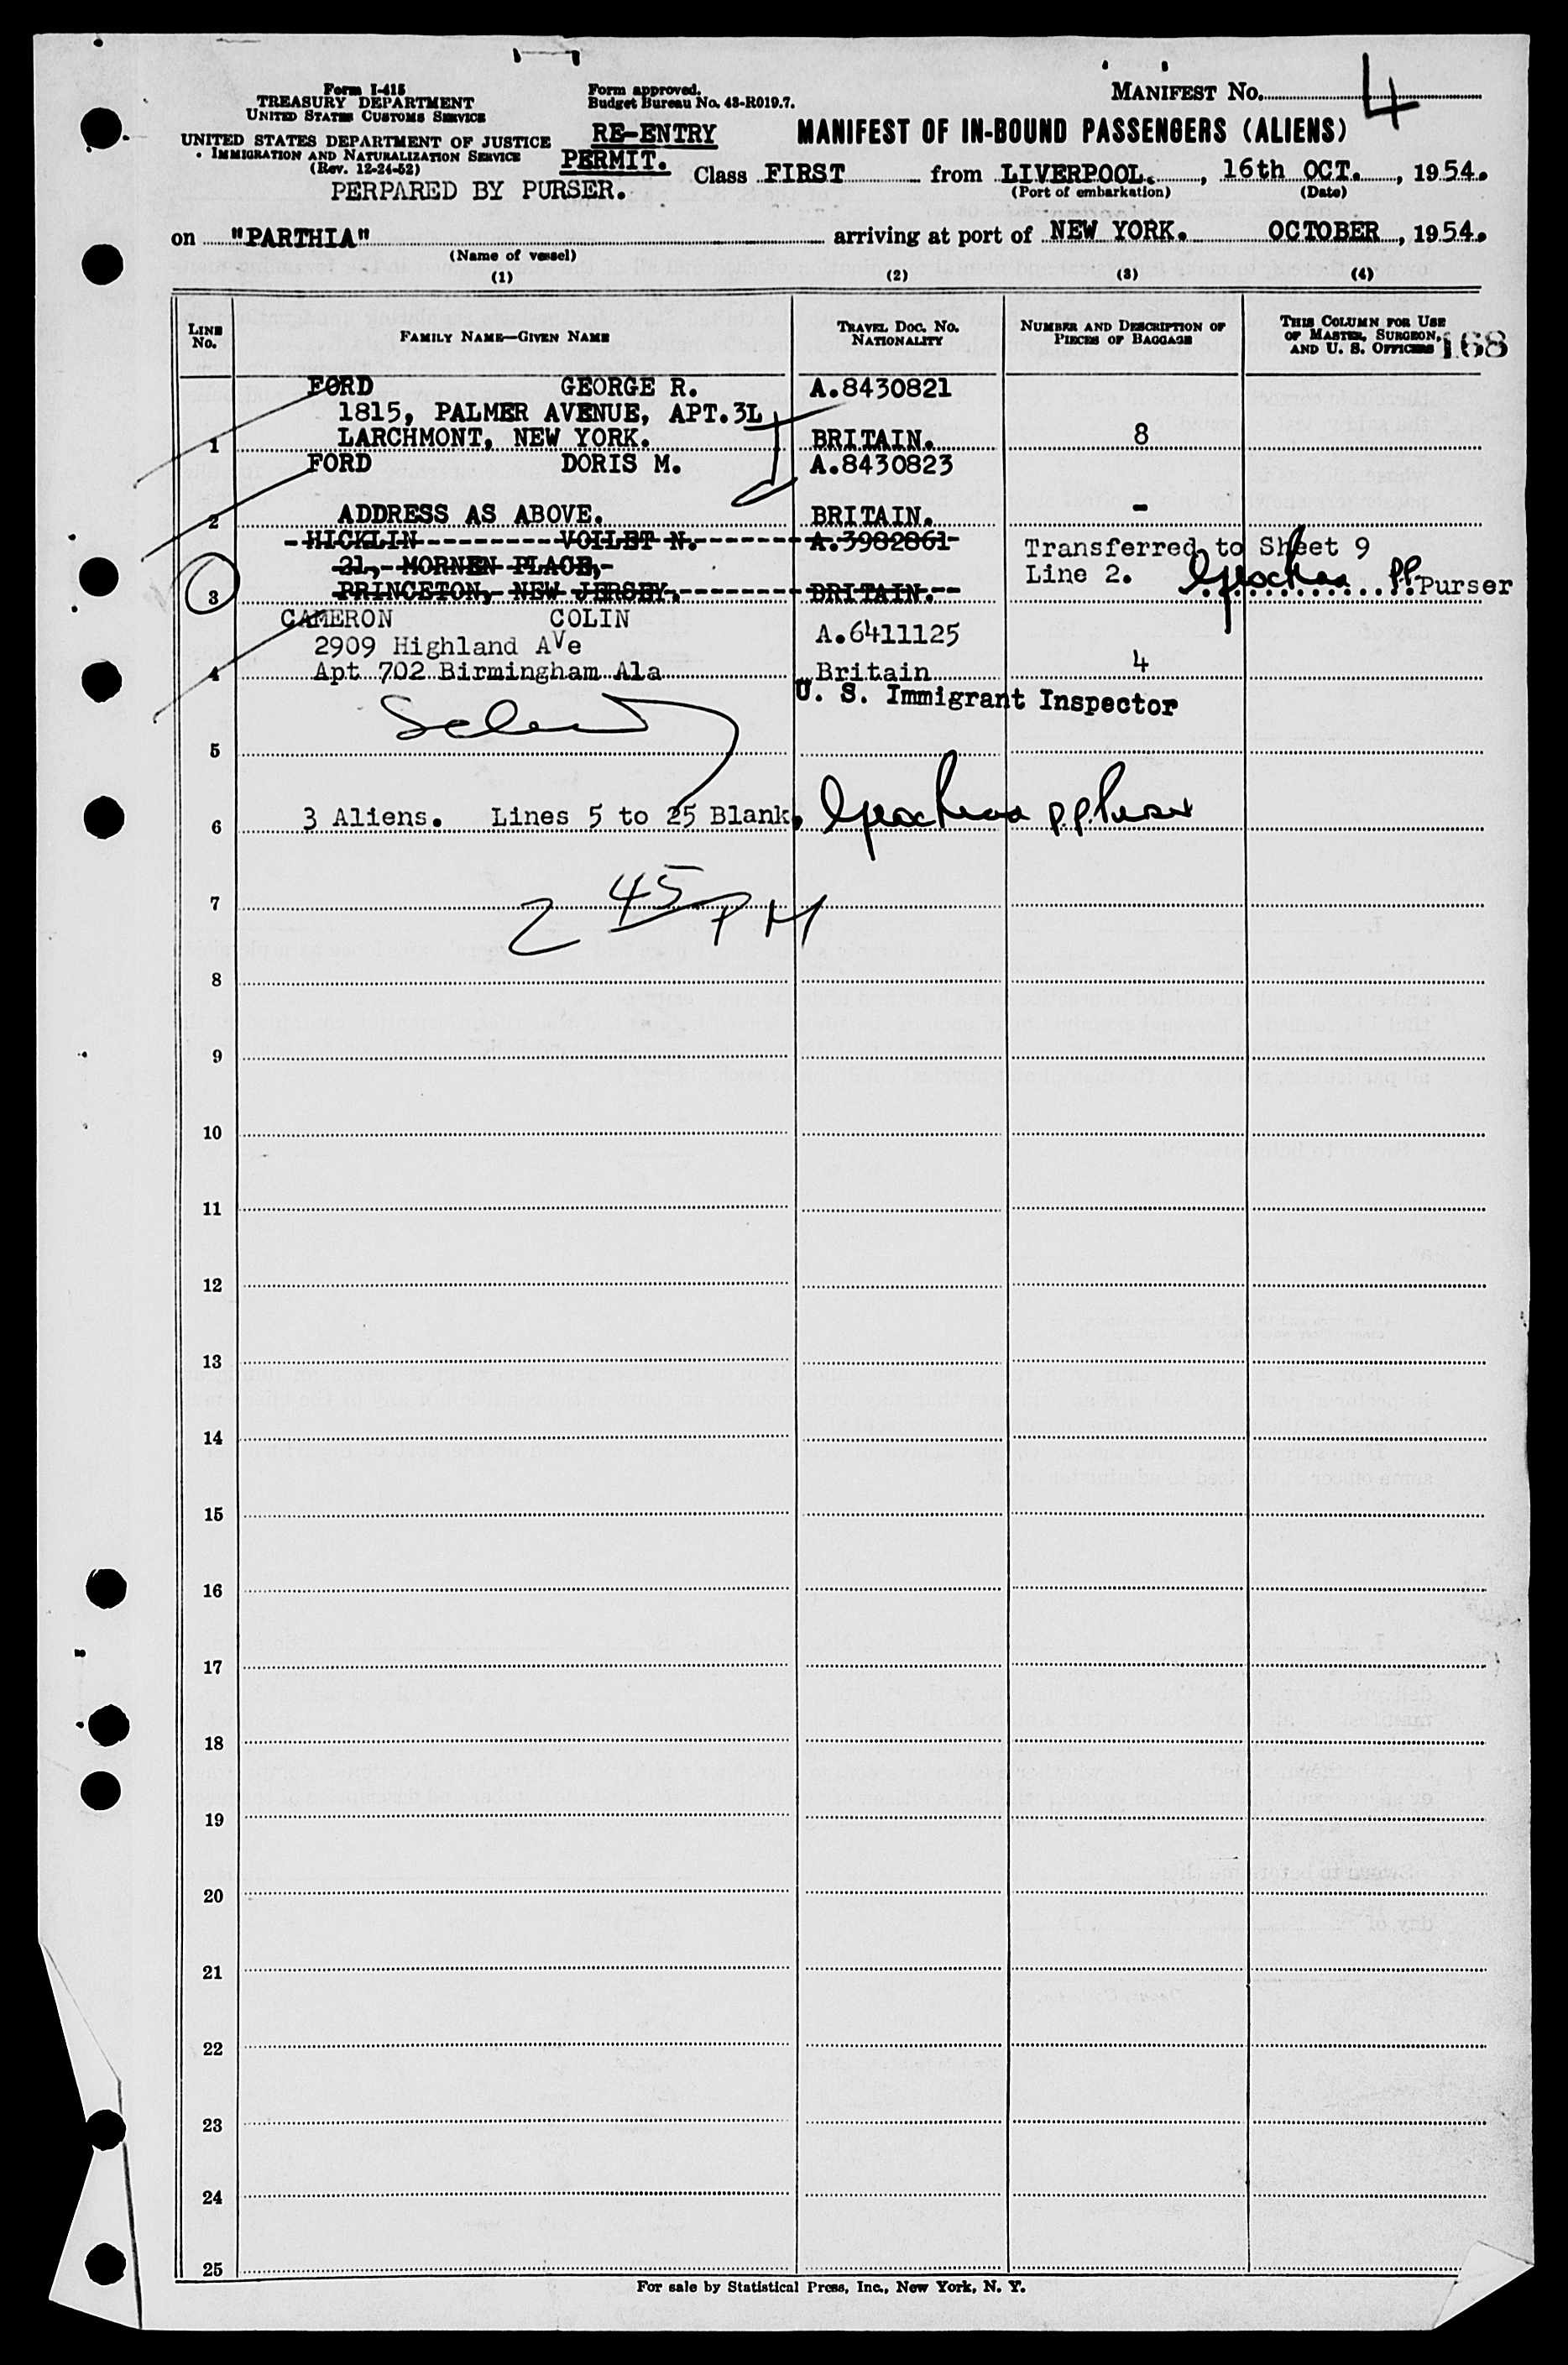 Form I-415
TREASURY DEPARTMENT
UNITED STATES CUSTOMS SERVICE
UNITED STATES DEPARTMENT OF JUSTICE
IMMIGRATION AND NATURALIZATION SERVICE
(Rev. 12-24-52)
PERPARED BY PURSER.
Form approved.
Budget Bureau No. 43-R019.7.
RE-ENTRY
PERMIT.
MANIFEST NO. 4
MANIFEST OF IN-BOUND PASSENGERS (ALIENS)
Class FIRST from LIVERPOOL. , 16th OCT. , 1954.
(Port of embarkation) (Date)
on "PARTHIA" arriving at port of NEW YORK. OCTOBER , 1954.
(Name of vessel)
(1) (2) (3) (4)
LINE NO. FAMILY NAME—GIVEN NAME TRAVEL DOC. NO. NATIONALITY NUMBER AND DESCRIPTION OF PIECES OF BAGGAGE THIS COLUMN FOR USE OF MASTER, SURGEON, AND U. S. OFFICERS 168
FORD GEORGE R. A.8430821
1815, PALMER AVENUE, APT.3L
1 LARCHMONT, NEW YORK. BRITAIN. 8
FORD DORIS M. A.8430823
2 ADDRESS AS ABOVE. BRITAIN. -
HICKLIN VOILET N. A.3982861 Transferred to Sheet 9
21, MORNEN PLACE, Line 2.
3 PRINCETON, NEW JERSEY. BRITAIN. PP Purser
CAMERON COLIN A.6411125
2909 Highland AVe
4 Apt 702 Birmingham Ala Britain 4
U. S. Immigrant Inspector
5
6 3 Aliens. Lines 5 to 25 Blank. p.p. Purser
7
2 45 PM
8
9
10
11
12
13
14
15
16
17
18
19
20
21
22
23
24
25
For sale by Statistical Press, Inc., New York, N. Y.